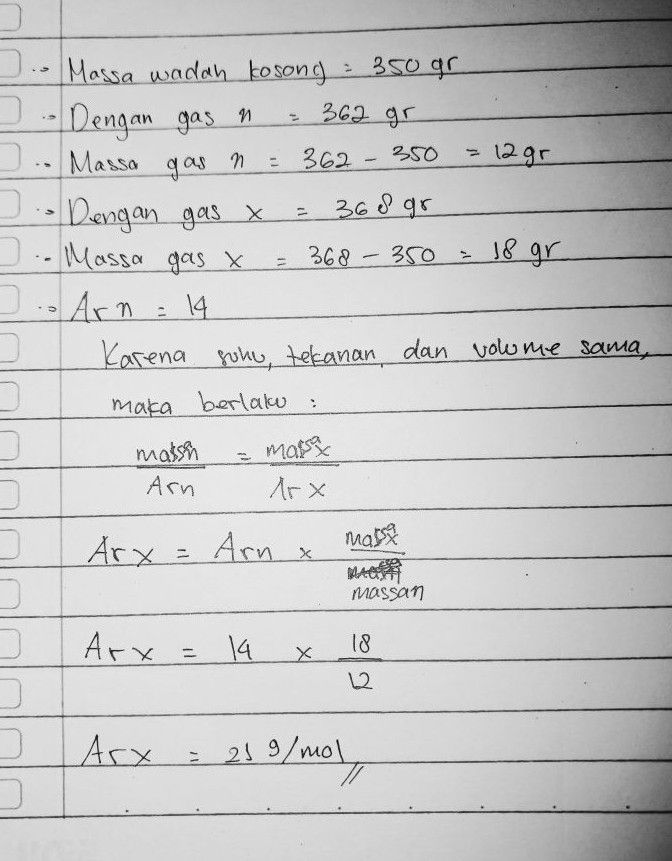 -> Massa wadah kosong = 350 gr
-> Dengan gas n = 362 gr
-> Massa gas n = 362 - 350 = 12 gr
-> Dengan gas x = 368 gr
-> Massa gas x = 368 - 350 = 18 gr
-> Ar n = 14
Karena suhu, tekanan, dan volume sama,
maka berlaku :
massa n / Ar n = massa x / Ar x
Ar x = Ar n x massa x / massa n
Ar x = 14 x 18 / 12
Ar x = 21 g/mol //